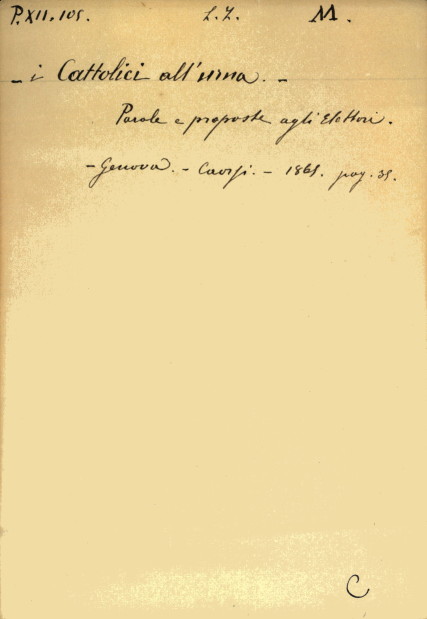 P.XII.105. L.Z. M.
- i Cattolici all'urna. -
Parole e proposte agli Elettori.
- Genova. - Caorsi. - 1865. pag. 35.
C